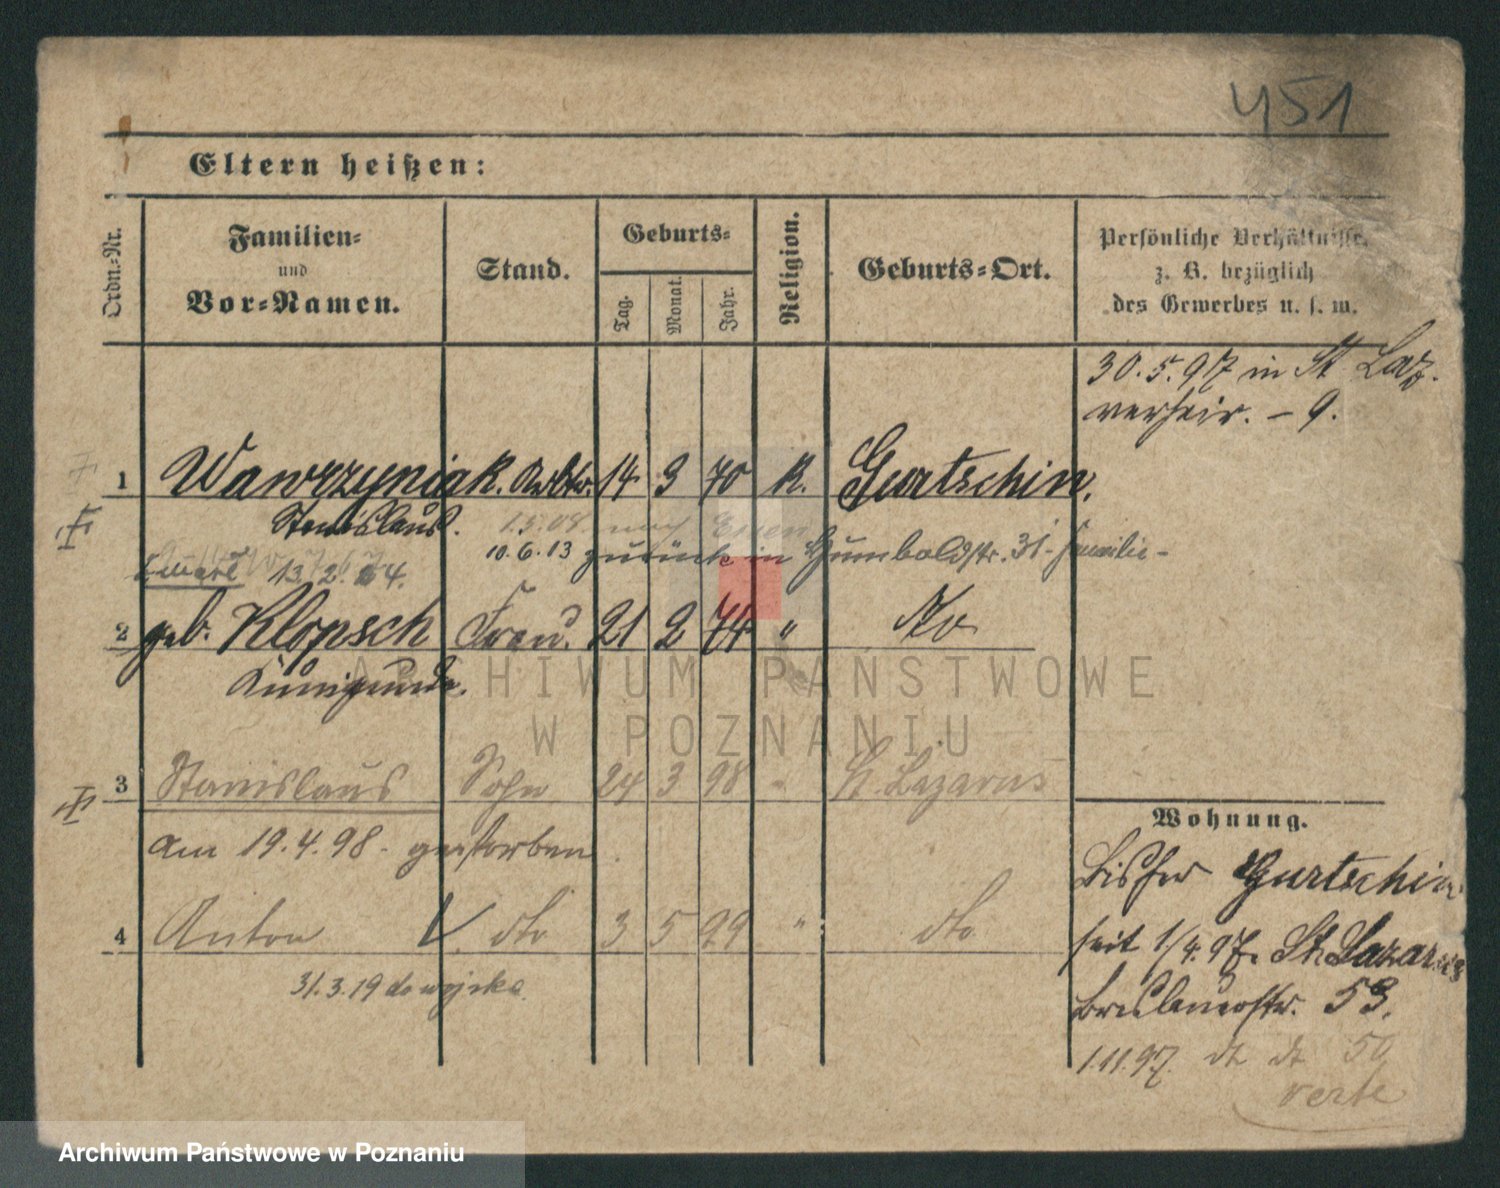 451
Eltern heißen:
Ordn.-Nr.
Familien-
und
Vor-Namen.
Stand.
Geburts-
Tag.
Monat.
Jahr.
Religion.
Geburts-Ort.
Persönliche Verhältnisse,
z. B. bezüglich
des Gewerbes u. s. w.
30.5.97 in St Laz.
verheir. – 9.
1 Wawrzyniak. 14 3 70 K. Gurtschin.
Stanislaus. 1.5.08. nach Essen
10.6.13 zurück in Humboldstr. 31 – Familie –
13.2.
2 geb. Klopsch Frau. 21 2 74 " dto
Kunigunde.
3 Stanislaus Sohn 24 3 98 " St. Lazarus
am 19.4.98 – gestorben.
4 Anton dto 3 5 99 " dto
31.3.19 do wojska.
Wohnung.
Bisher Gurtschin
seit 1/4.97. St. Lazarus
Breslauerstr. 53.
1.11.97. dt dt 50
verte
ARCHIWUM PAŃSTWOWE
W POZNANIU
Archiwum Państwowe w Poznaniu